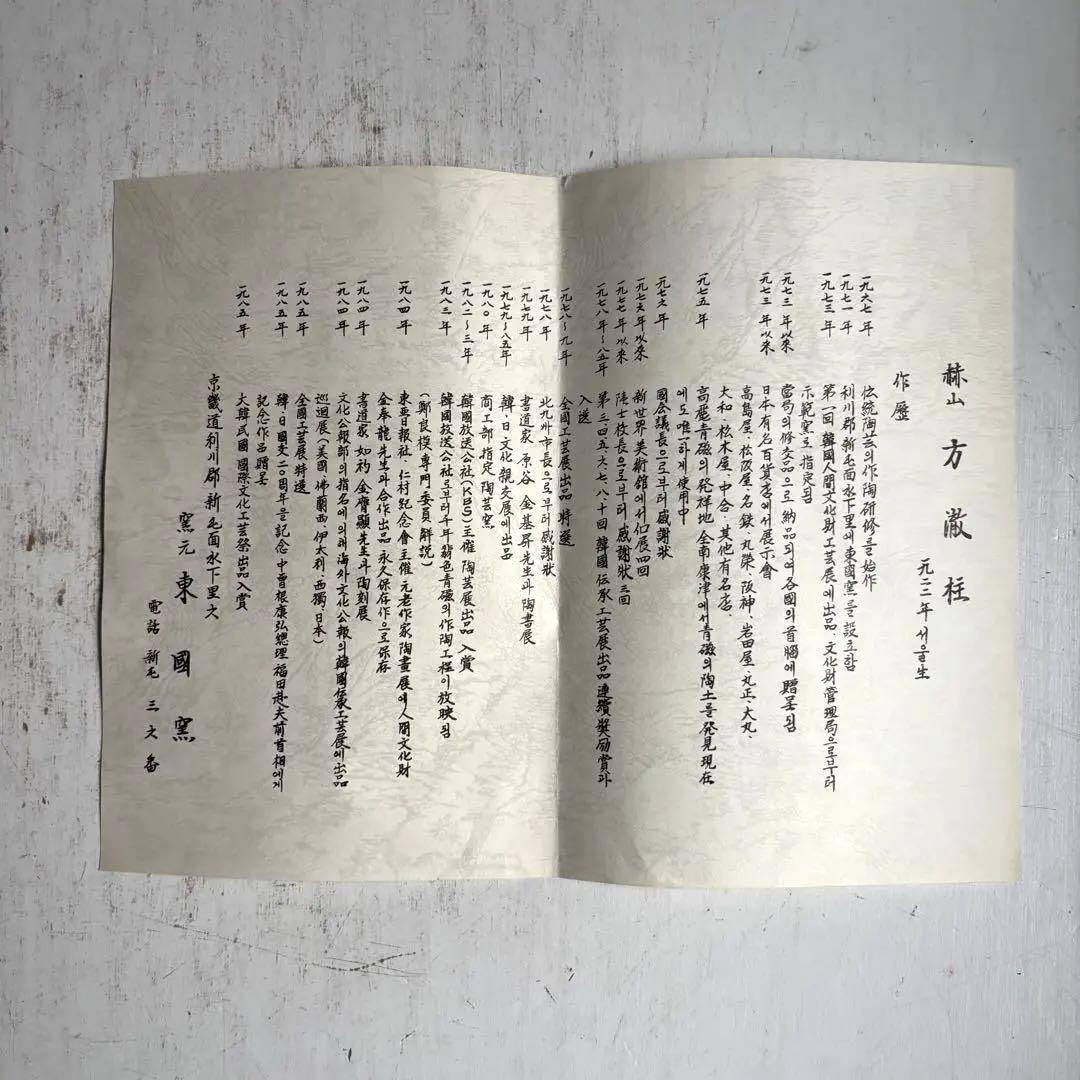 赫山 方澈柱
元二二年 서울生
作歷
一九六七年 伝統陶芸의 作陶研修를 始作
一九七一年 利川郡 新屯面 水下里에 東國窯를 設立함
一九七三年 第一回 韓國人間文化財工芸展에 出品. 文化財管理局으로부터
示範窯로 指定됨
一九七三年以來 當局의 修交品으로 納品되여 各國의 首腦에 贈呈됨
一九七三年以來 日本有名百貨店에서 展示會
高島屋、松阪屋、名鉄、丸榮、阪神、岩田屋、丸正、大丸、
大和、松木屋、中合、其他有名店、
一九七五年 高麗青磁의 発祥地 全南康津에서 青磁의 陶土를 発見 現在
에도 唯一하게 使用中
一九七六年 國会議長으로부터 感謝狀
一九七六年以來 新世界美術館에서 個展四回
一九七七年以來 陸士校長으로부터 感謝狀 三回
一九七八年~八五年 第三、四、五、六、七、八、十回 韓國伝承工芸展出品 連續奬励賞과
入選
一九七八~九年 全國工芸展出品 特選
一九七八年 北九州市長으로부터 感謝狀
一九七九年 書道家 原谷 金基昇先生과 陶書展
一九七九~八五年 韓、日文化親交展에 出品
一九八〇年 商工部指定 陶芸窯
一九八二~三年 韓國放送公社(KBS)主催 陶芸展出品 入賞
一九八三年 韓國放送公社로부터 千年翡色青磁의 作陶工程이 放映됨
(鄭良模専門委員 解説)
一九八四年 東亜日報社 仁村紀念會主催 元老作家陶畫展에 人間文化財
金奉龍先生과 合作出品 永久保存作으로 保存
一九八四年 書道家 如初 金膺顯先生과 陶刻展
一九八四年 文化公報部의 指名에 의해 海外文化公報의 韓國伝承工芸展에 出品
巡迴展(美國、佛蘭西、伊太利、西獨、日本)
一九八五年 全國工芸展 特選
一九八五年 韓、日國交二〇周年을 記念 中曽根康弘總理 福田赳夫前首相에게
記念作品贈呈
一九八五年 大韓民國 國際文化工芸祭出品 入賞
京畿道利川郡新屯面水下里
窯元 東國窯
電話 新屯 三 番